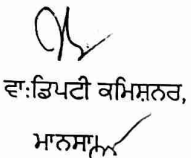 ਵਾ:ਡਿਪਟੀ ਕਮਿਸ਼ਨਰ,
ਮਾਨਸਾ